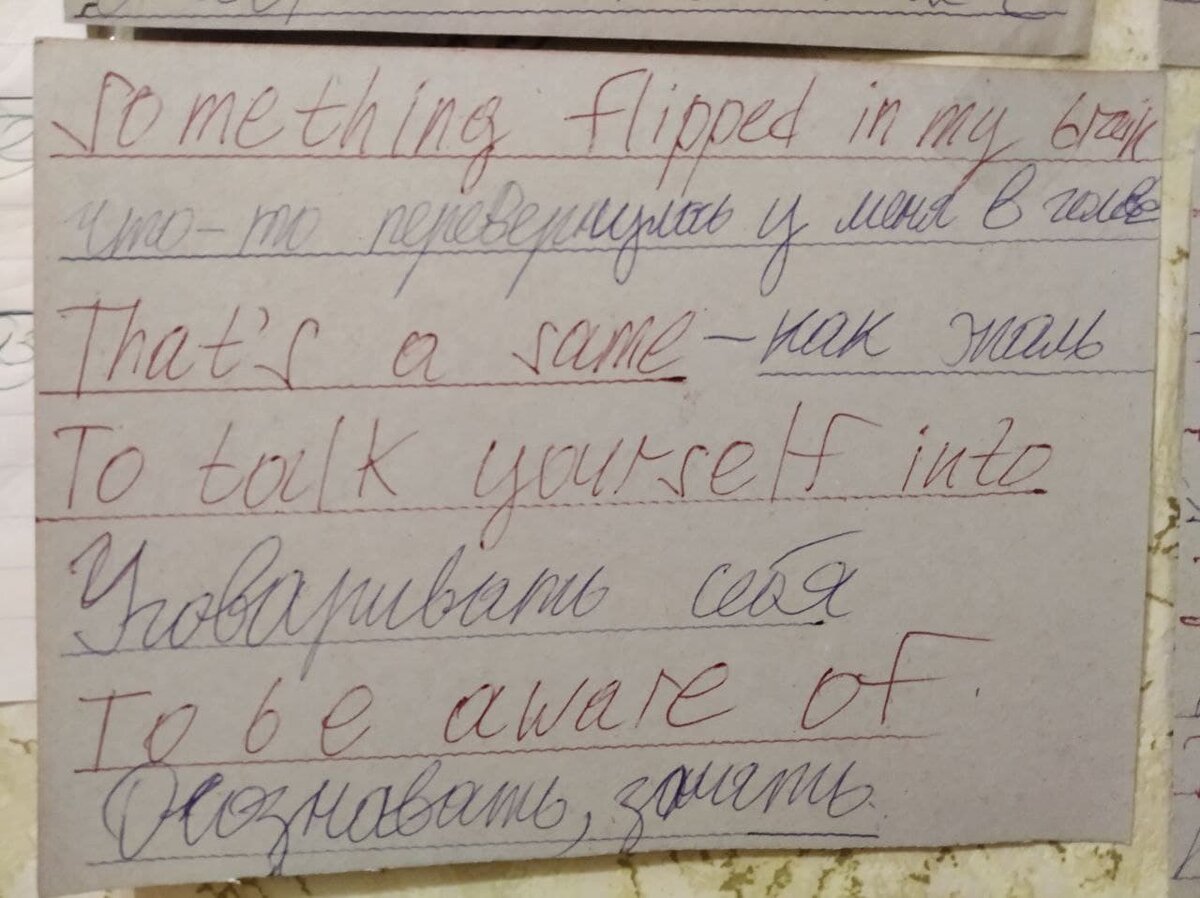 Something flipped in my brain
что-то перевернулось у меня в голове
That's a same – как жаль
To talk yourself into
Уговаривать себя
To be aware of
Осознавать, знать.